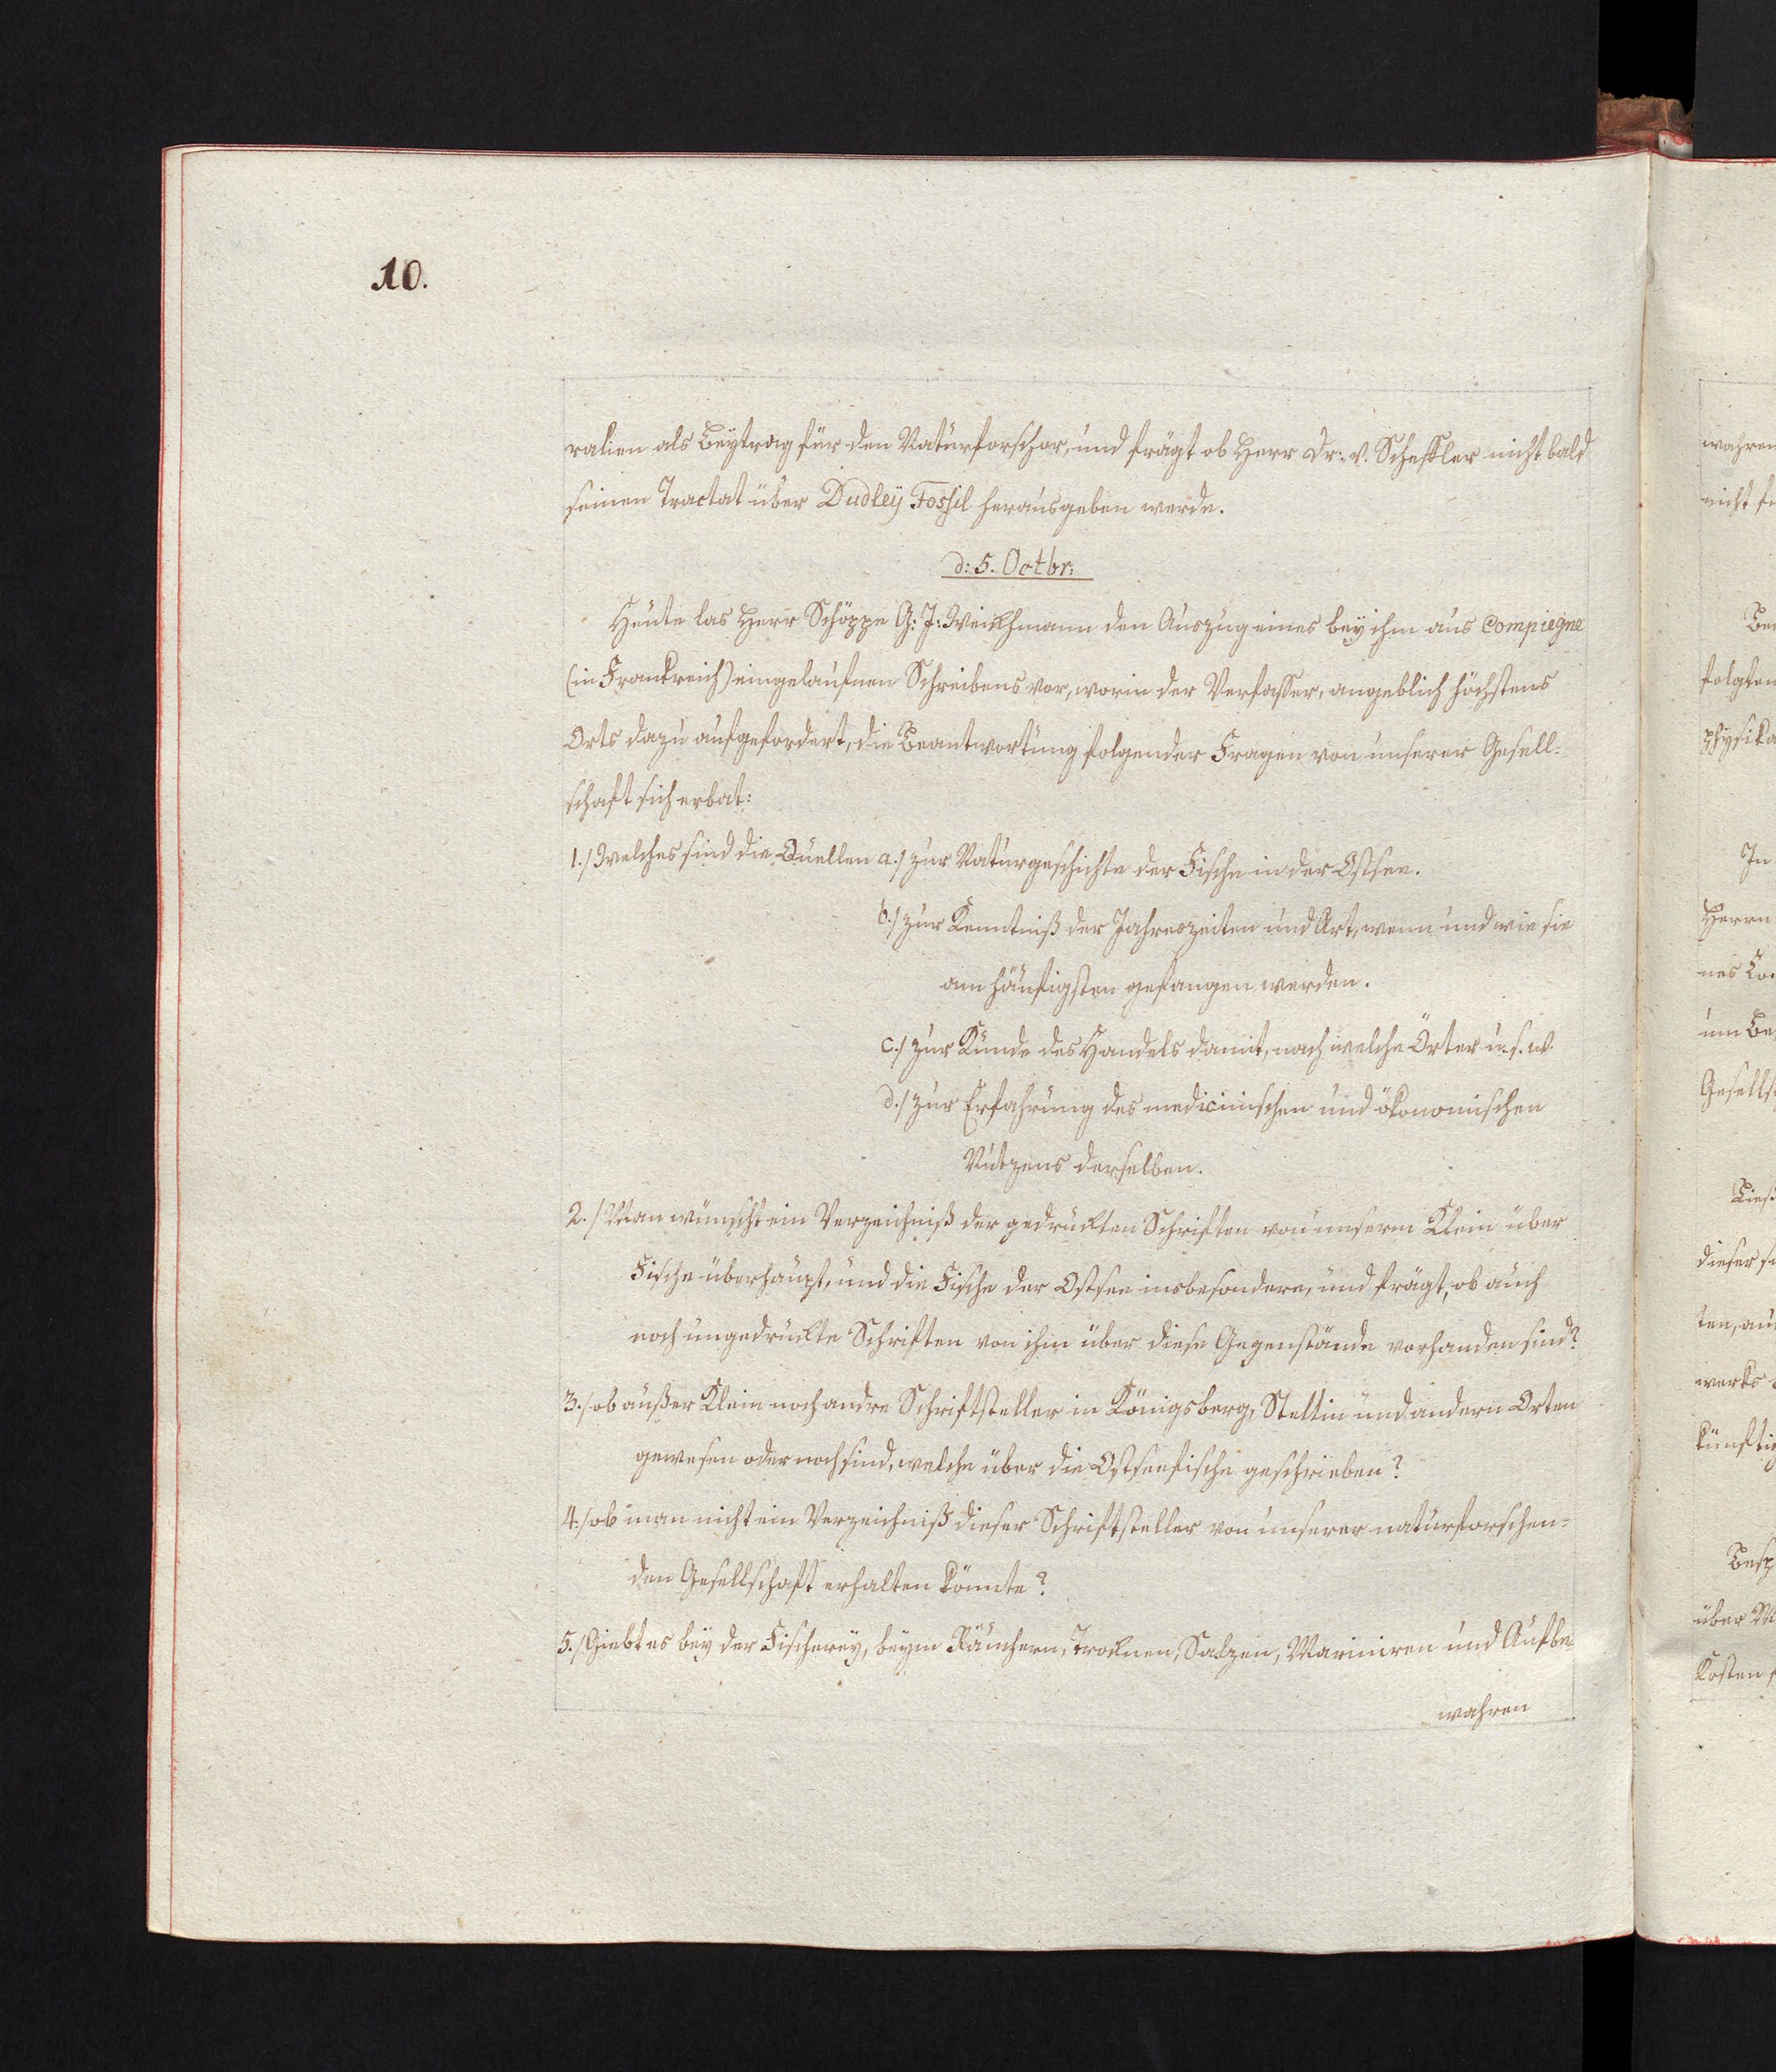 10.
ralien als Beytrag für den Naturforscher, und frägt ob Herr Dr: v. Scheffler nicht bald
seinen Tractat über Dudley Fossil herausgeben werde.
d: 5. Octbr:
Heute las Herr Schöppe G: J: Weickhmann den Auszug eines bey ihm aus Compiegne
(in Frankreich) eingelaufnen Schreibens vor, worin der Verfasser, angeblich höchstens
Orts dazu aufgefordert, die Beantwortung folgender Fragen von unserer Gesell-
schaft sich erbat:
1./ Welches sind die Quellen a./ zur Naturgeschichte der Fische in der Ostsee.
b./ zur Kenntniß der Jahreszeiten und Art, wenn und wie sie
am häufigsten gefangen werden.
c./ zur Kunde des Handels damit, nach welche Örter u. s. w.
d./ zur Erfahrung des medicinischen und ökonomischen
Nutzens derselben.
2./ Man wünscht ein Verzeichniß der gedruckten Schriften von unserm Klein über
Fische überhaupt, und die Fische der Ostsee insbesondere, und frägt, ob auch
noch ungedruckte Schriften von ihm über diese Gegenstände vorhanden sind?
3./ ob außer Klein noch andre Schriftsteller in Königsberg, Stettin und andern Orten
gewesen oder noch sind, welche über die Ostseefische geschrieben?
4./ ob man nicht ein Verzeichniß dieser Schriftsteller von unserer naturforschen-
den Gesellschaft erhalten könnte?
5./ Giebt es bey der Fischerey, beym Räuchern, Trocknen, Salzen, Mariniren und Aufbe-
wahren